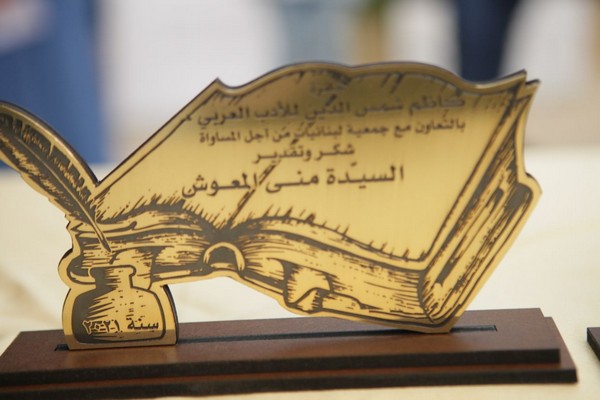 جائزة
كاظم شمس الدين للأدب العربي
بالتعاون مع جمعية لبنانيات من أجل المساواة
شكر وتقدير
السيّدة منى المعوش
سنة ٢٠٢١